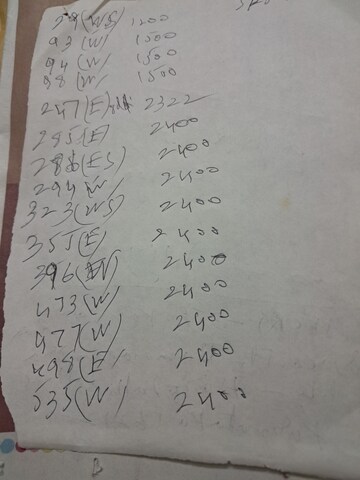 29(WS) 1200
93(W) 1500
94(W) 1500
98(W) 1500
247(E) 2322
285(E) 2400
286(ES) 2400
294 W) 2400
323(WS) 2400
355(E) 2400
396(W) 2400
473(W) 2400
477(W) 2400
498(E) 2400
535(W) 2400
B